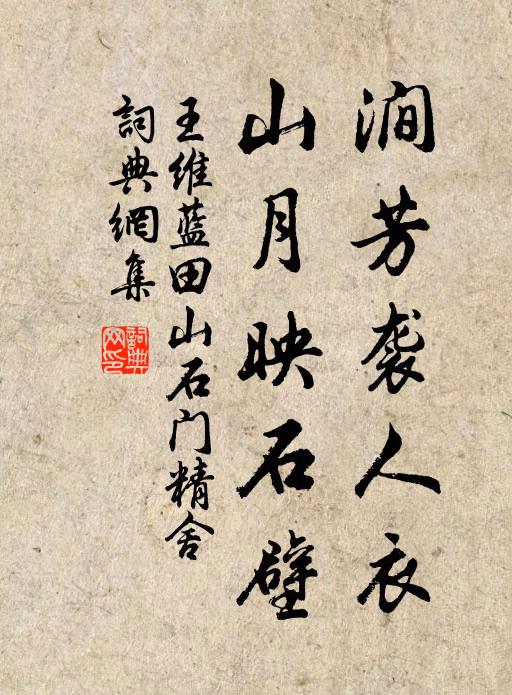 澗芳袭人衣
山月映石壁
王维蓝田山石门精舍
詞典網集
詞典网印